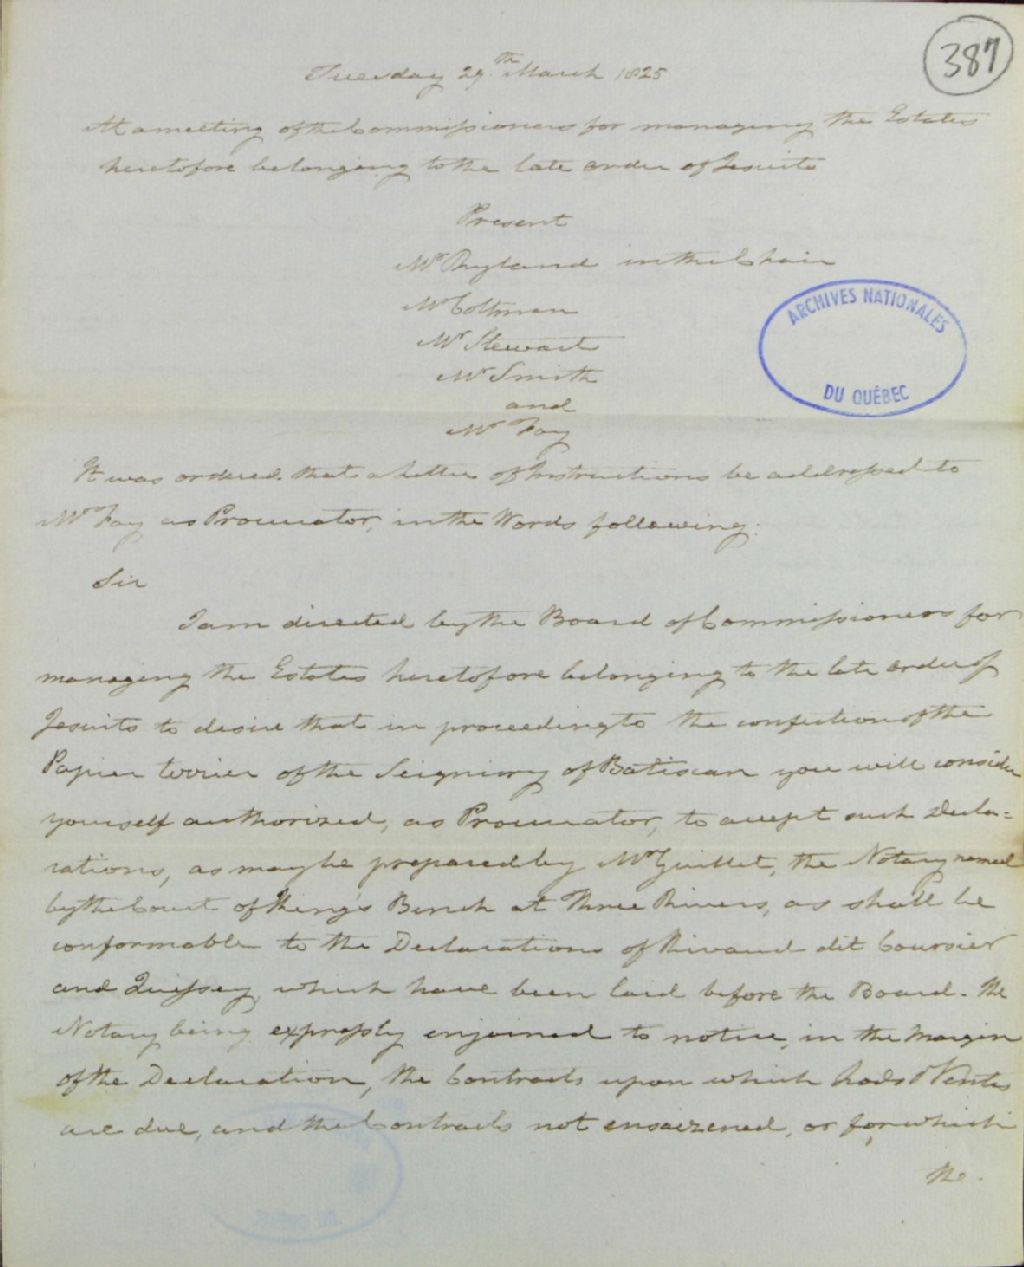 387
Tuesday 29.th March 1825
At a meeting of the Commissioners for managing the Estates
heretofore belonging to the late order of Jesuits
Present
Mr Ryland in the Chair
Mr Coltman
Mr Stewart
Mr Smith
and
Mr Fay
ARCHIVES NATIONALES
DU QUÉBEC
It was ordered that a Letter of Instructions be addressed to
Mr Fay as Procurator, in the Words following:
Sir
I am directed by the Board of Commissioners for
managing the Estates heretofore belonging to the late order of
Jesuits to desire that in proceeding to the confection of the
Papier terrier of the Seigniory of Batiscan you will consider
yourself authorized, as Procurator, to accept such Decla=
rations, as may be prepared by Mr Guillet, the Notary named
by the Court of King's Bench at Three Rivers, as shall be
conformable to the Declarations of Rivaud dit Coursier
and which have been laid before the Board. The
Notary being expressly enjoined to notice, in the Margin
of the Declaration, the Contracts upon which Lods & Ventes
are due, and the Contracts not ensaizened, or for which
the.